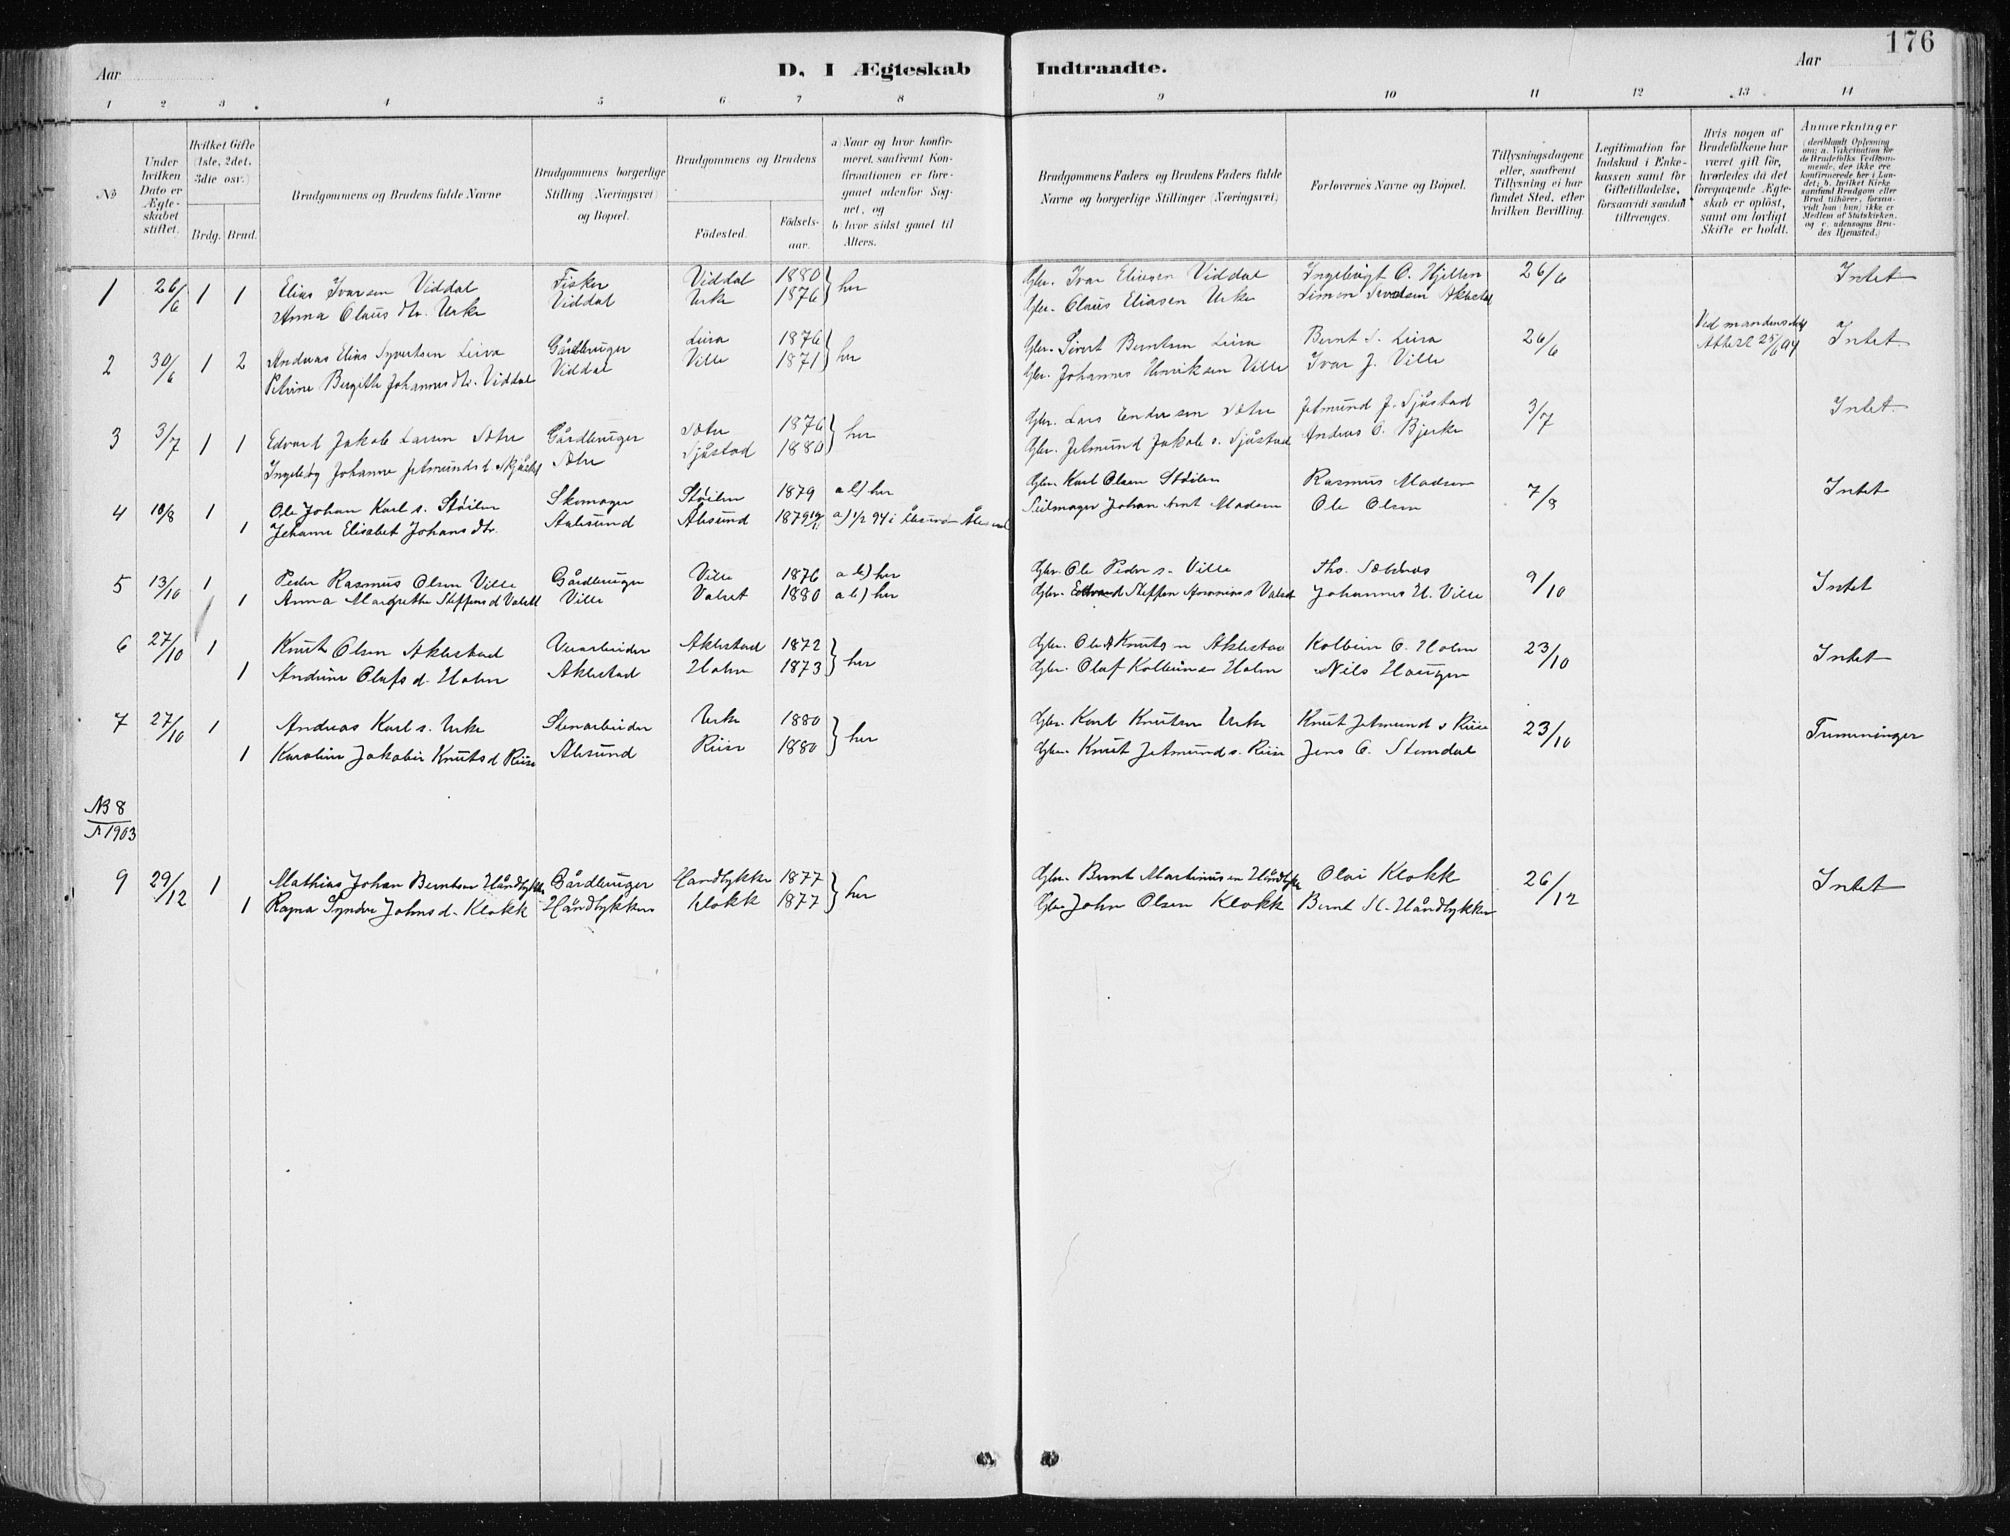 176
Aar
D. I Ægteskab Indtraadte.
Aar
1 2 3 4 5 6 7 8 9 10 11 12 13 14
№
Under hvilken Dato er Ægteskabet stiftet.
Hvilket Gifte (1ste, 2det, 3die osv.)
Brdg. Brud.
Brudgommens og Brudens fulde Navne
Brudgommens borgerlige Stilling (Næringsvei) og Bopæl.
Brudgommens og Brudens
Födested.
Födselsaar.
a) Naar og hvor konfirmeret, saafremt Konfirmationen er foregaaet udenfor Sognet, og
b) hvor sidst gaaet til Alters.
Brudgommens Faders og Brudens Faders fulde Navne og borgerlige Stillinger (Næringsvei)
Forlovernes Navne og Bopæl.
Tillysningsdagene eller, saafremt Tillysning ei har fundet Sted, efter hvilken Bevilling.
Legitimation for Indskud i Enkekassen samt for Giftetilladelse, forsaavidt saadan tiltrænges.
Hvis nogen af Brudefolkene har været gift för, hvorledes da det foregaaende Ægteskab er oplöst, samt om lovligt Skifte er holdt.
Anmærkninger (deriblandt Oplysning om: a. Vakcination for de Brudefolks Vedkommende, der ikke ere konfirmerede her i Landet; b. hvilket Kirkesamfund Brudgom eller Brud tilhörer, forsaavidt han (hun) ikke er Medlem af Statskirken. og c. udensogns Brudes Hjemsted.)
1 26/6 1 1 Elias Ivarsen Viddal Fisker Viddal 1880 her Gbr. Ivar Eliasen Viddal Ingebrigt O. Hjellen 26/6 Intet
Anna Claus dtr. Urke Viddal Urke 1876 Gbr. Claus Eliasen Urke Simon Aklestad
2 30/6 1 2 Andreas Elias Syvertsen Leira Gårdbruger Leira 1876 her Gbr. Sivert Berntsen Leira Bernt S. Leira 26/6 Ved mandens død Attest 25/6 04 Intet
Petrine Bergitte Johannes dtr. Viddal Viddal Ville 1871 Gbr. Johannes Henriksen Ville Ivar J. Ville
3 3/7 1 1 Edvard Jakob Larsen Sætre Gårdbruger Sætre 1876 her Gbr. Lars Endresen Sætre Jetmund J. Sjåstad 3/7 Intet
Ingeborg Johanne Jetmunds d. Sjåstad Sætre Sjåstad 1880 Gbr. Jetmund Jakob s. Sjåstad Andreas O. Bjerke
4 10/8 1 Ole Johan Karl s. Støilen Skomager Støilen 1879 a b) her Gbr. Karl Olsen Støilen Rasmus Madsen 7/8 Intet
1 Johanne Elisabet Johans dtr. Aalesund Ålesund 1879 a) 1/2 94 i Ålesund Seilmager Johan Arnt Madsen Ole Olsen
5 13/10 1 Peder Rasmus Olsen Ville Gårdbruger Ville 1876 a b) her Gbr. Ole Peder s. Ville Ths. Sæbønes 9/10 Intet
1 Anna Margrethe Steffens d Valset Ville Valset 1880 a b) her Gbr. Steffen Valset Johannes H. Ville
6 27/10 1 Knut Olsen Aklestad Veiarbeider Aklestad 1872 her Gbr. Ole Knuts n Aklestad Kolbein O. Holm 23/10 Intet
1 Andrine Olafs d. Holm Aklestad Holm 1873 Gbr. Olaf Kolbeinsen Holm Nils Haugen
7 27/10 1 Andreas Karl s. Urke Stenarbeider Urke 1880 her Gbr. Karl Knutsen Urke Knut Jetmund s Riise 23/10 Tremenninger
1 Karoline Jakobie Knuts d Riise Ålesund Riise 1880 Gbr. Knut Jetmund s. Riise Jens O. Stemdal
NB 8
A 1903
9 29/12 1 Mathias Johan Berntsen Håndlykken Gårdbruger Håndlykken 1877 her Gbr. Bernt Martinusen Håndlykken Olai Klokk 26/12 Intet
1 Ragna Synøve Johns d. Klokk Håndlykken Klokk 1877 Gbr. John Olsen Klokk Bernt M. Håndlykken